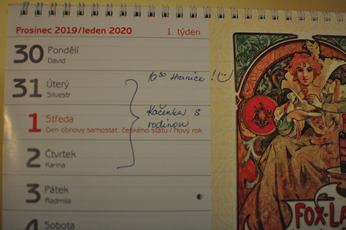 Prosinec 2019/leden 2020 1. týden
30 Pondělí
David
31 Úterý
Silvestr
1 Středa
Den obnovy samostat. českého státu / Nový rok
2 Čtvrtek
Karina
3 Pátek
Radmila
4 Sobota
!
Kačenka s
rodinou
FOX-LA